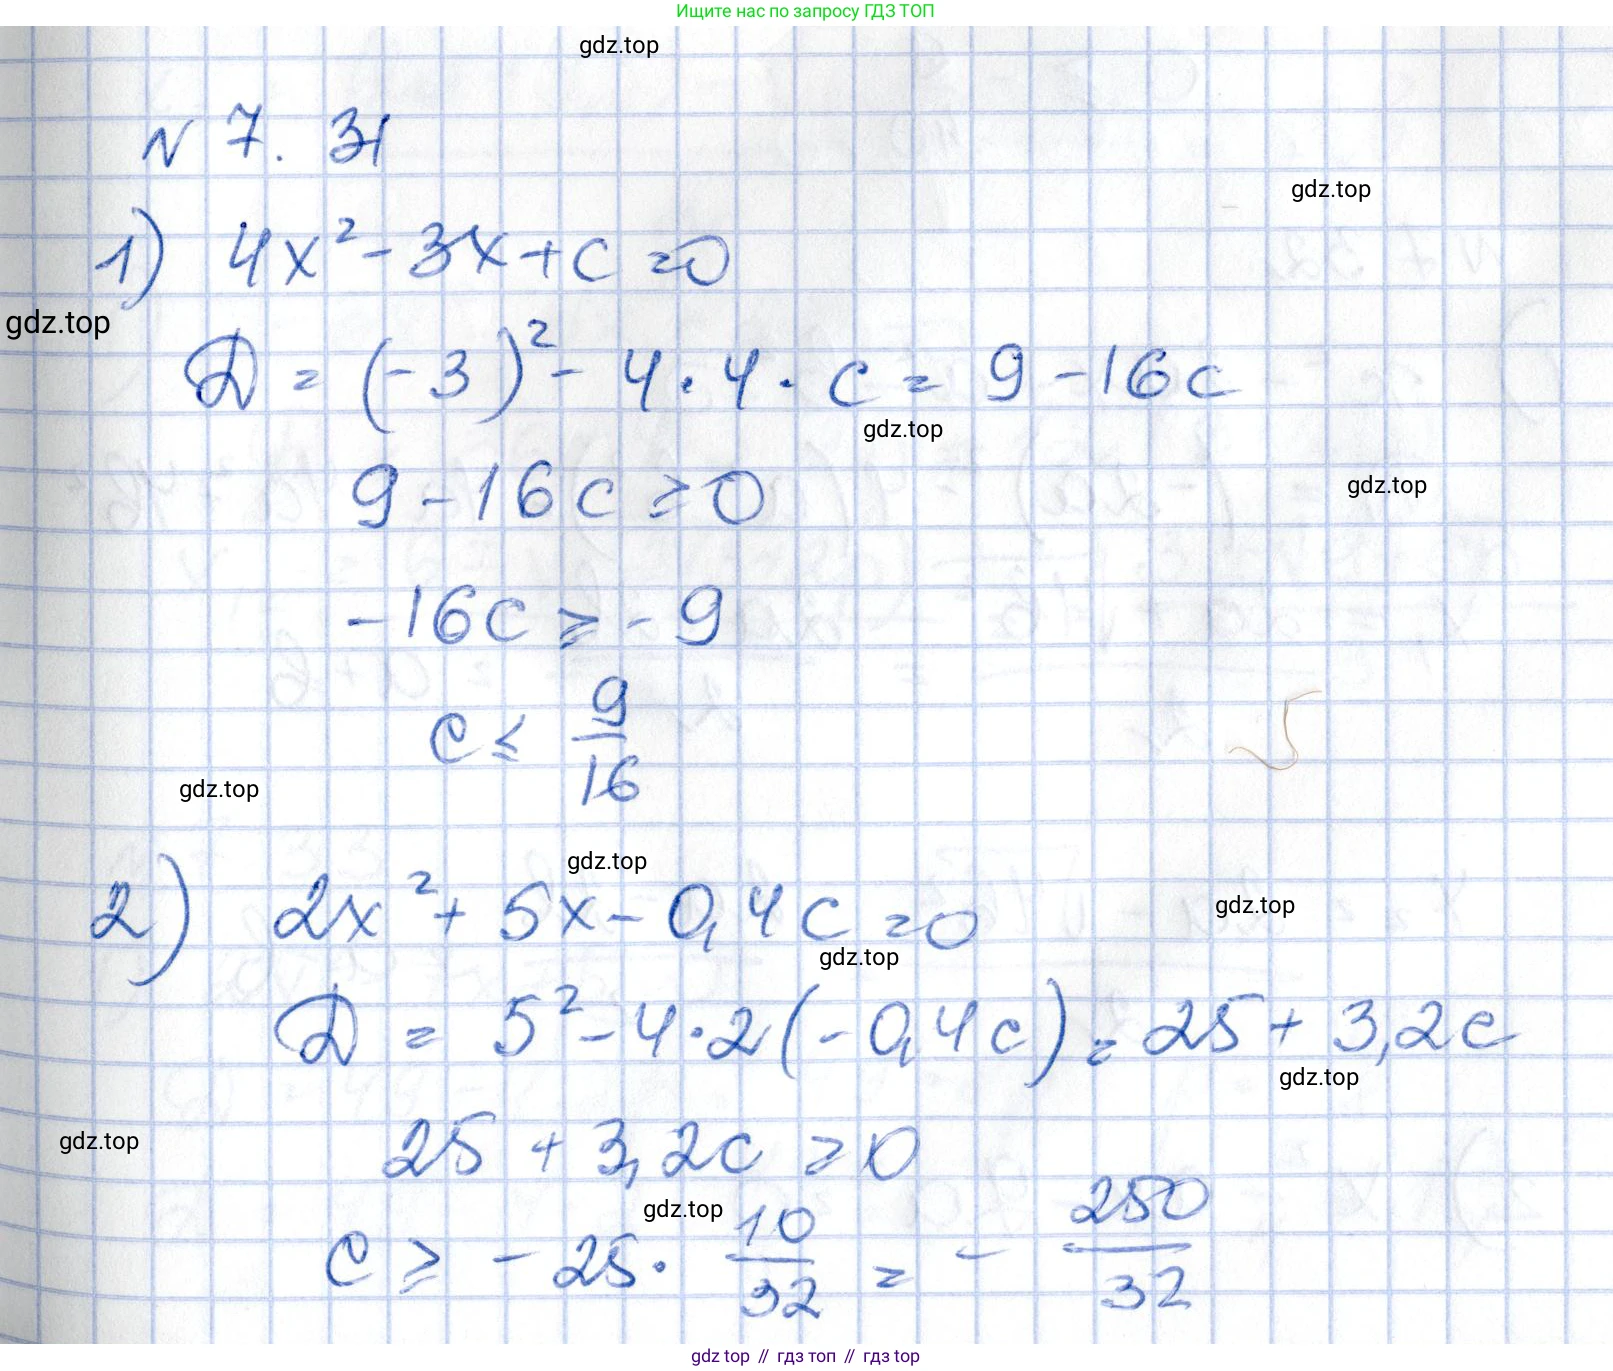 Ищите нас по запросу ГДЗ ТОП
gdz.top
N 7. 31
gdz.top
1) 4x² - 3x + c = 0
gdz.top
D = (-3)² - 4 · 4 · c = 9 - 16c
gdz.top
9 - 16c ≥ 0
gdz.top
-16c ≥ -9
c ≤ 9/16
gdz.top
gdz.top
2) 2x² + 5x - 0,4c = 0
gdz.top
gdz.top
D = 5² - 4 · 2(-0,4c) = 25 + 3,2c
gdz.top
25 + 3,2c ≥ 0
gdz.top
gdz.top
c ≥ -25 · 10/32 = - 250/32
gdz top // гдз топ // гдз top